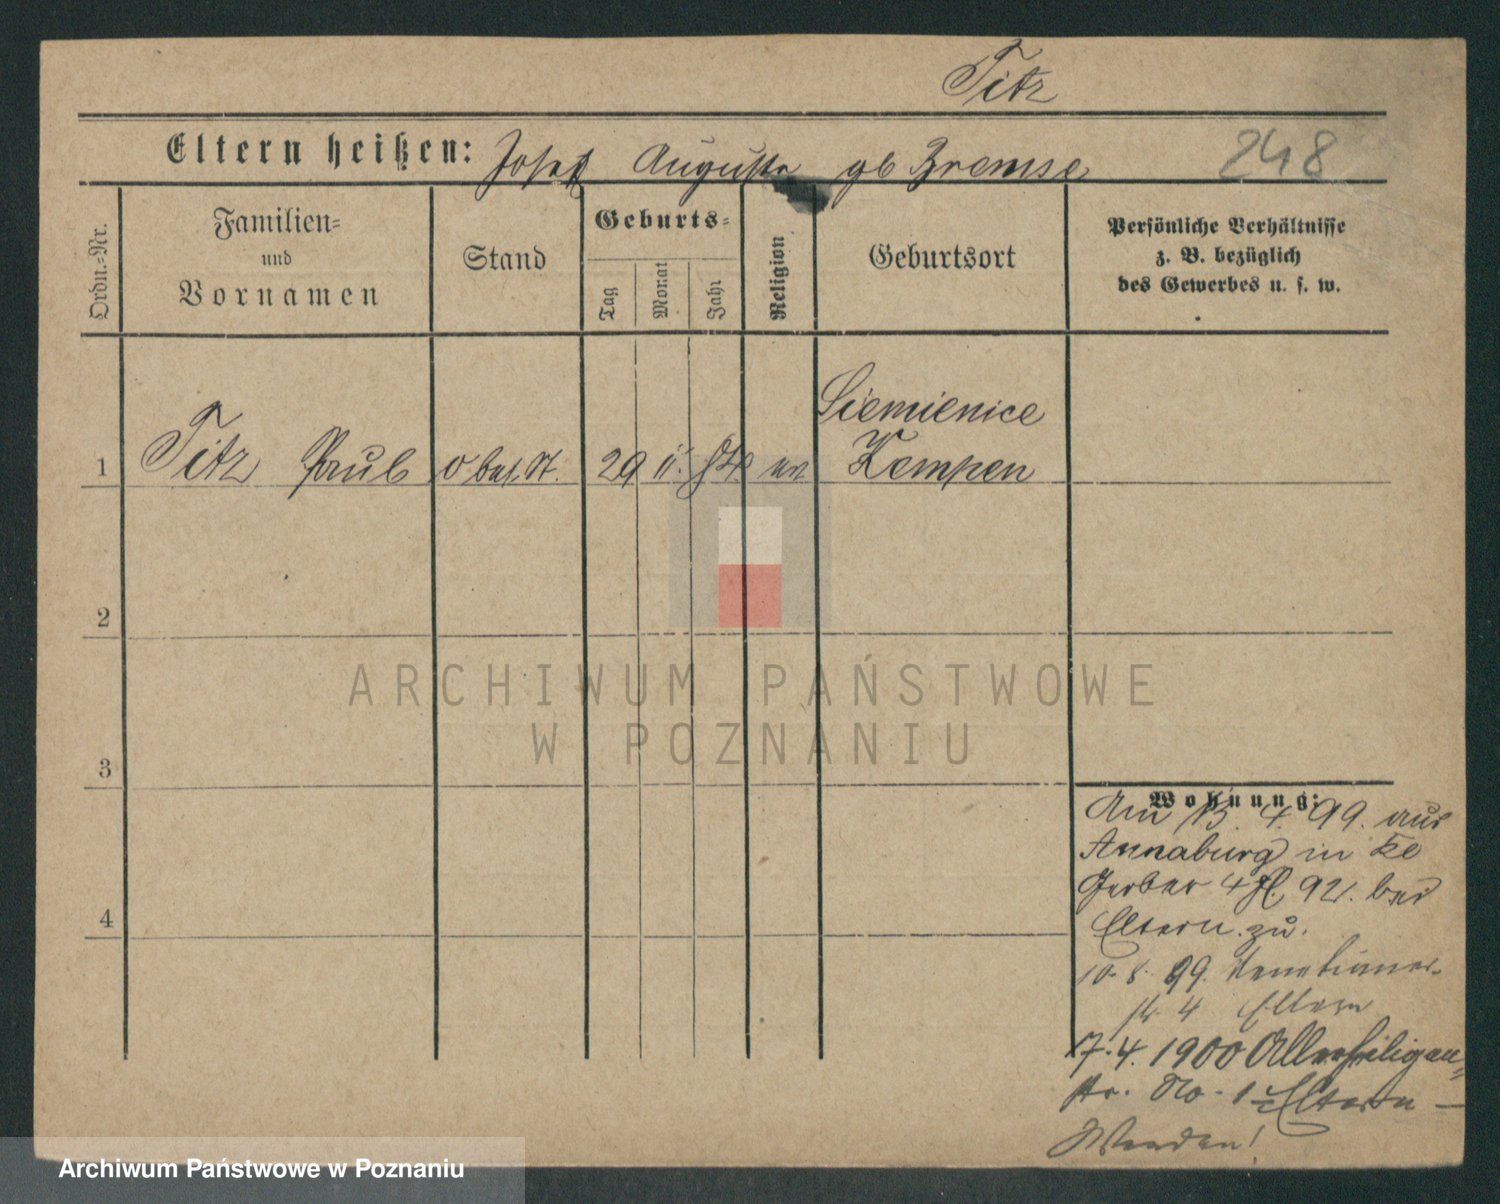 Titz
Eltern heißen: Josef Auguste gb Bremse 248
Ordn.=Nr.
Familien=
und
Vornamen
Stand
Geburts=
Tag
Monat
Jahr
Religion
Geburtsort
Persönliche Verhältnisse
z. B. bezüglich
des Gewerbes u. s. w.
Siemienice
1 Titz Paul 29 84 ev Kempen
2
ARCHIWUM PAŃSTWOWE
W POZNANIU
3
Wohnung:
Am 13. 4. 99. aus
Annaburg in
Gerber 4 bei
Eltern zu.
10. 8. 99. Venetianer-
str. 4 Eltern
4
7. 4. 1900 Allerheiligen=
str. No. 1 Eltern –
Wenden!
Archiwum Państwowe w Poznaniu